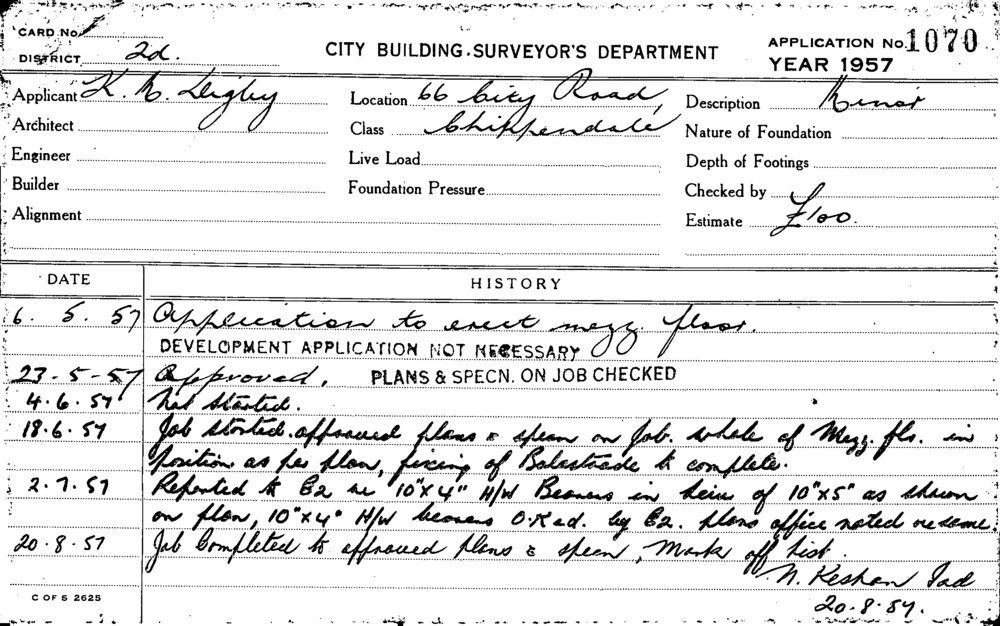 CARD No.
DISTRICT 2d.
CITY BUILDING SURVEYOR'S DEPARTMENT
APPLICATION No. 1070
YEAR 1957
Applicant K. R. Digby
Location 66 City Road,
Description Minor
Architect
Class Chippendale
Nature of Foundation
Engineer
Live Load
Depth of Footings
Builder
Foundation Pressure
Checked by
Alignment
Estimate £100.
DATE HISTORY
6. 5. 57 Application to erect mezz floor.
DEVELOPMENT APPLICATION NOT NECESSARY
23-5-57 Approved. PLANS & SPECN. ON JOB CHECKED
4.6.57 Not started.
18.6.57 Job started. approved plans & specn on Job. whole of Mezz. fls. in
position as per plan, fixing of Balestrade to complete.
2.7.57 Reported to E2 re 10"x4" H/W Bearers in lieu of 10"x5" as shown
on plan, 10"x4" H/W bearers O.K.ed. by E2. plans office noted re same.
20.8.57 Job Completed to approved plans & specn, Mark off list.
N. Keshan
20.8.57.
C OF S 2625